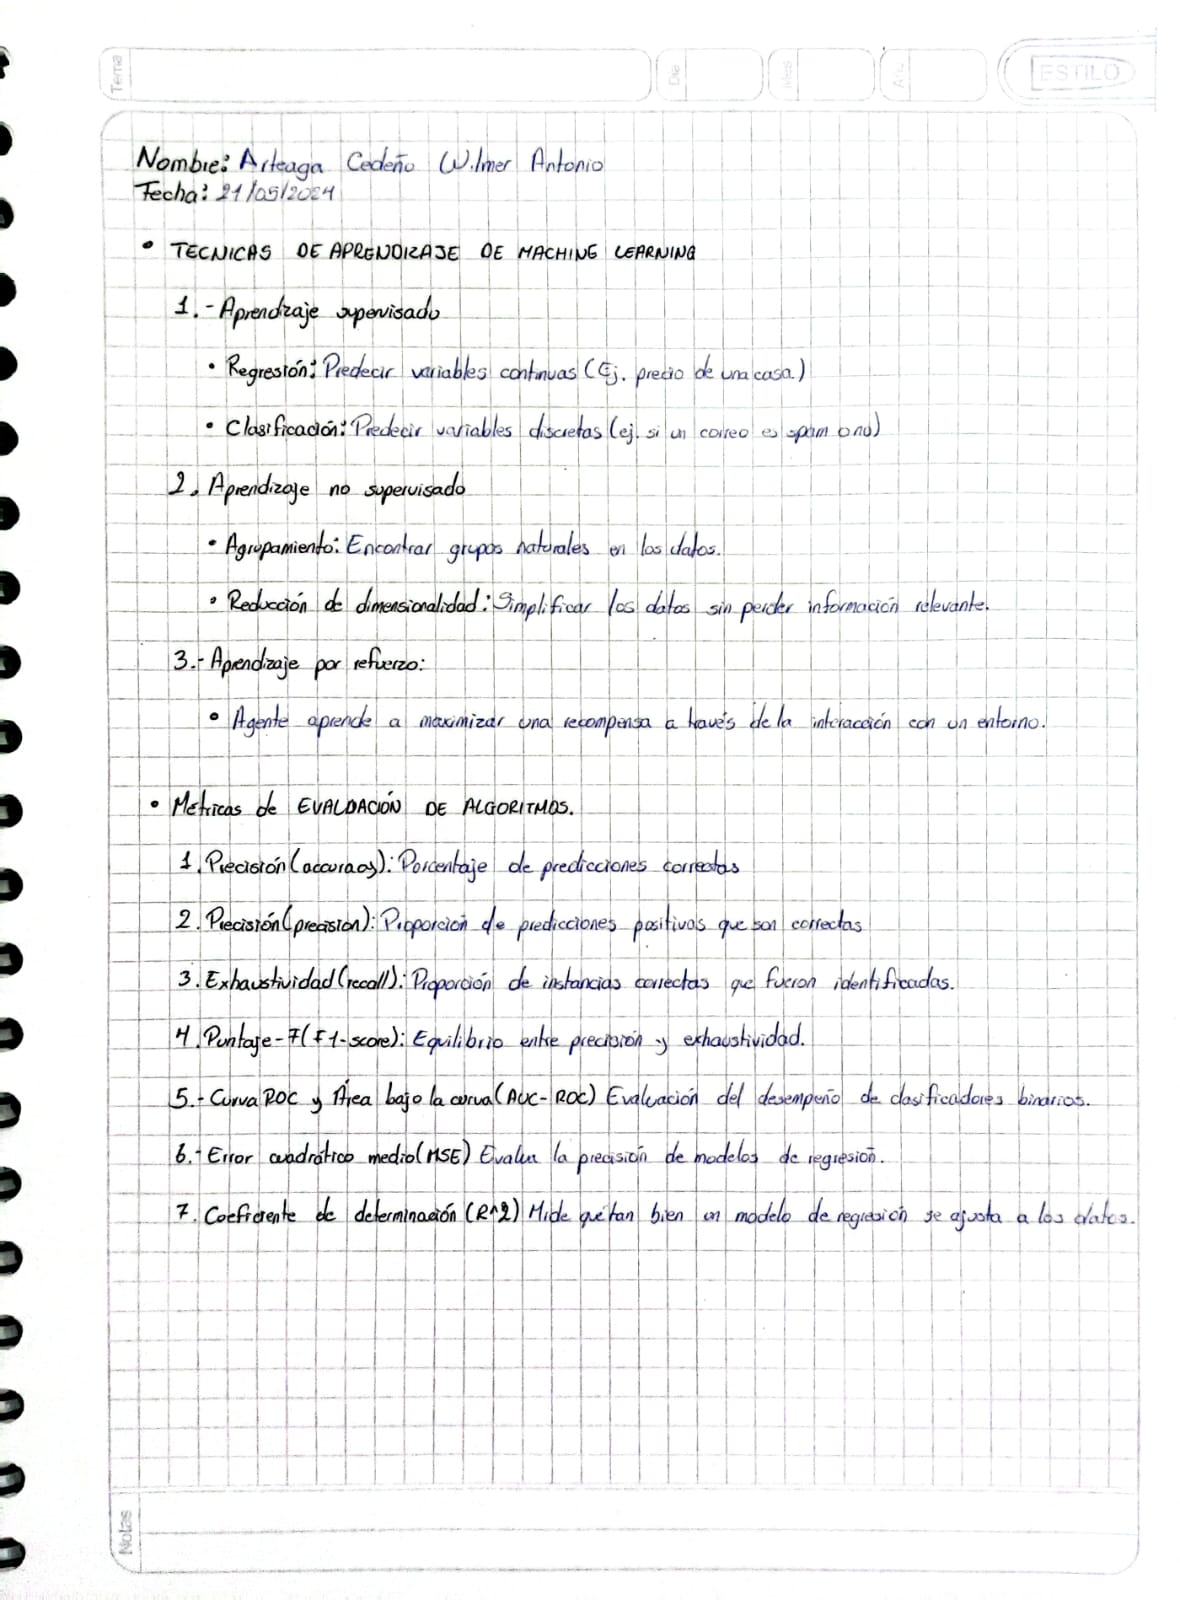 Tema
Dia
Mes
Año
ESTILO
Nombre: Arteaga Cedeño Wilmer Antonio
Fecha: 21/05/2024
• TECNICAS DE APRENDIZAJE DE MACHINE LEARNING
1.- Aprendizaje supervisado
• Regresión: Predecir variables continuas (Ej. precio de una casa.)
• Clasificación: Predecir variables discretas (ej. si un correo es spam o no)
2. Aprendizaje no supervisado
• Agrupamiento: Encontrar grupos naturales en los datos.
• Reducción de dimensionalidad: Simplificar los datos sin perder información relevante.
3.- Aprendizaje por refuerzo:
• Agente aprende a maximizar una recompensa a través de la interacción con un entorno.
• Métricas de EVALUACIÓN DE ALGORITMOS.
1. Precisión (accuracy): Porcentaje de predicciones correctas
2. Precisión (precision): Proporción de predicciones positivas que son correctas
3. Exhaustividad (recall): Proporción de instancias correctas que fueron identificadas.
4. Puntaje-F (F1-score): Equilibrio entre precisión y exhaustividad.
5.- Curva ROC y Área bajo la curva (AUC-ROC) Evaluación del desempeño de clasificadores binarios.
6.- Error cuadrático medio (MSE) Evalua la precisión de modelos de regresión.
7. Coeficiente de determinación (R^2) Mide qué tan bien un modelo de regresión se ajusta a los datos.
Notas